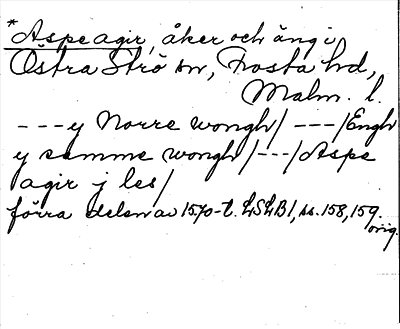 *Aspeagir, åker och äng i
Östra Strö sn, Frosta hd,
Malm. l.
---y Norre wongh/ ---/Engh
y samme wongh/---/Aspe
agir j les/
förra delen av 1570-t. LSLB1, ss. 158, 159.
orig.